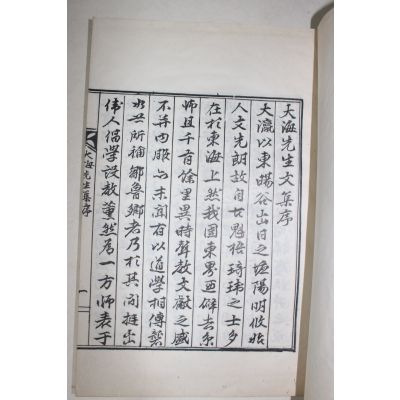 大海先生文集序
大瀛以東暘谷出日之墟陽明攸始
人文先朗故自古魁梧琦瑋之士多
在於東海上然我國東界亞僻去京
師且千有餘里異時聲敎文獻之盛
不并內服而未聞有以道學相傳襲
如世所稱鄒魯鄕者乃於其間挺出
偉人倡學設敎蔚然爲一方師表于
大海先生集序
一